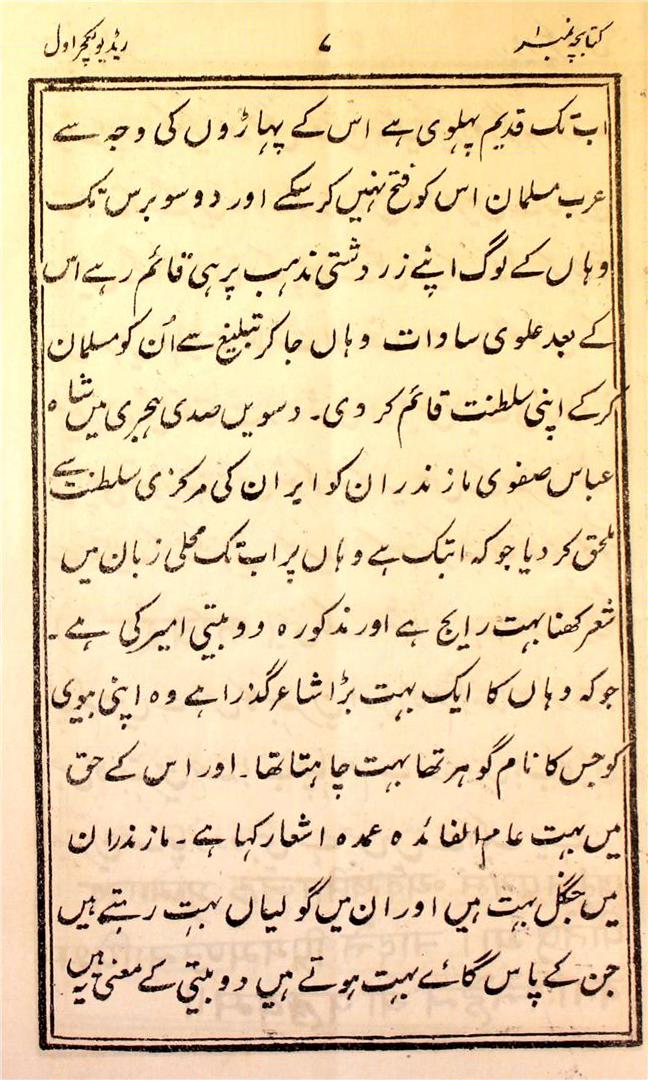 کتابچہ نمبر۱ ۷ ریڈیو لکچر اول
اب تک قدیم پہلوی ہے اس کے پہاڑوں کی وجہ سے
عرب مسلمان اس کو فتح نہیں کر سکے اور دو سو برس تک
وہاں کے لوگ اپنے زردشتی مذہب پر ہی قائم رہے اس
کے بعد علوی سادات وہاں جا کر تبلیغ سے اُن کو مسلمان
کرکے اپنی سلطنت قائم کر دی۔ دسویں صدی ہجری میں شاہ
عباس صفوی مازندران کو ایران کی مرکزی سلطنت سے
ملحق کر دیا جو کہ ابتک ہے وہاں پر اب تک محلی زبان میں
شعر کہنا بہت رایج ہے اور مذکورہ دو بیتی امیر کی ہے۔
جو کہ وہاں کا ایک بہت بڑا شاعر گذرا ہے وہ اپنی بیوی
کو جس کا نام گوہر تھا بہت چاہتا تھا۔ اور اس کے حق
میں بہت عام الفائدہ عمدہ اشعار کہا ہے۔ مازندران
میں جنگل بہت ہیں اور ان میں گولیاں بہت رہتے ہیں
جن کے پاس گائے بہت ہوتے ہیں دو بیتی کے معنی یہ ہیں